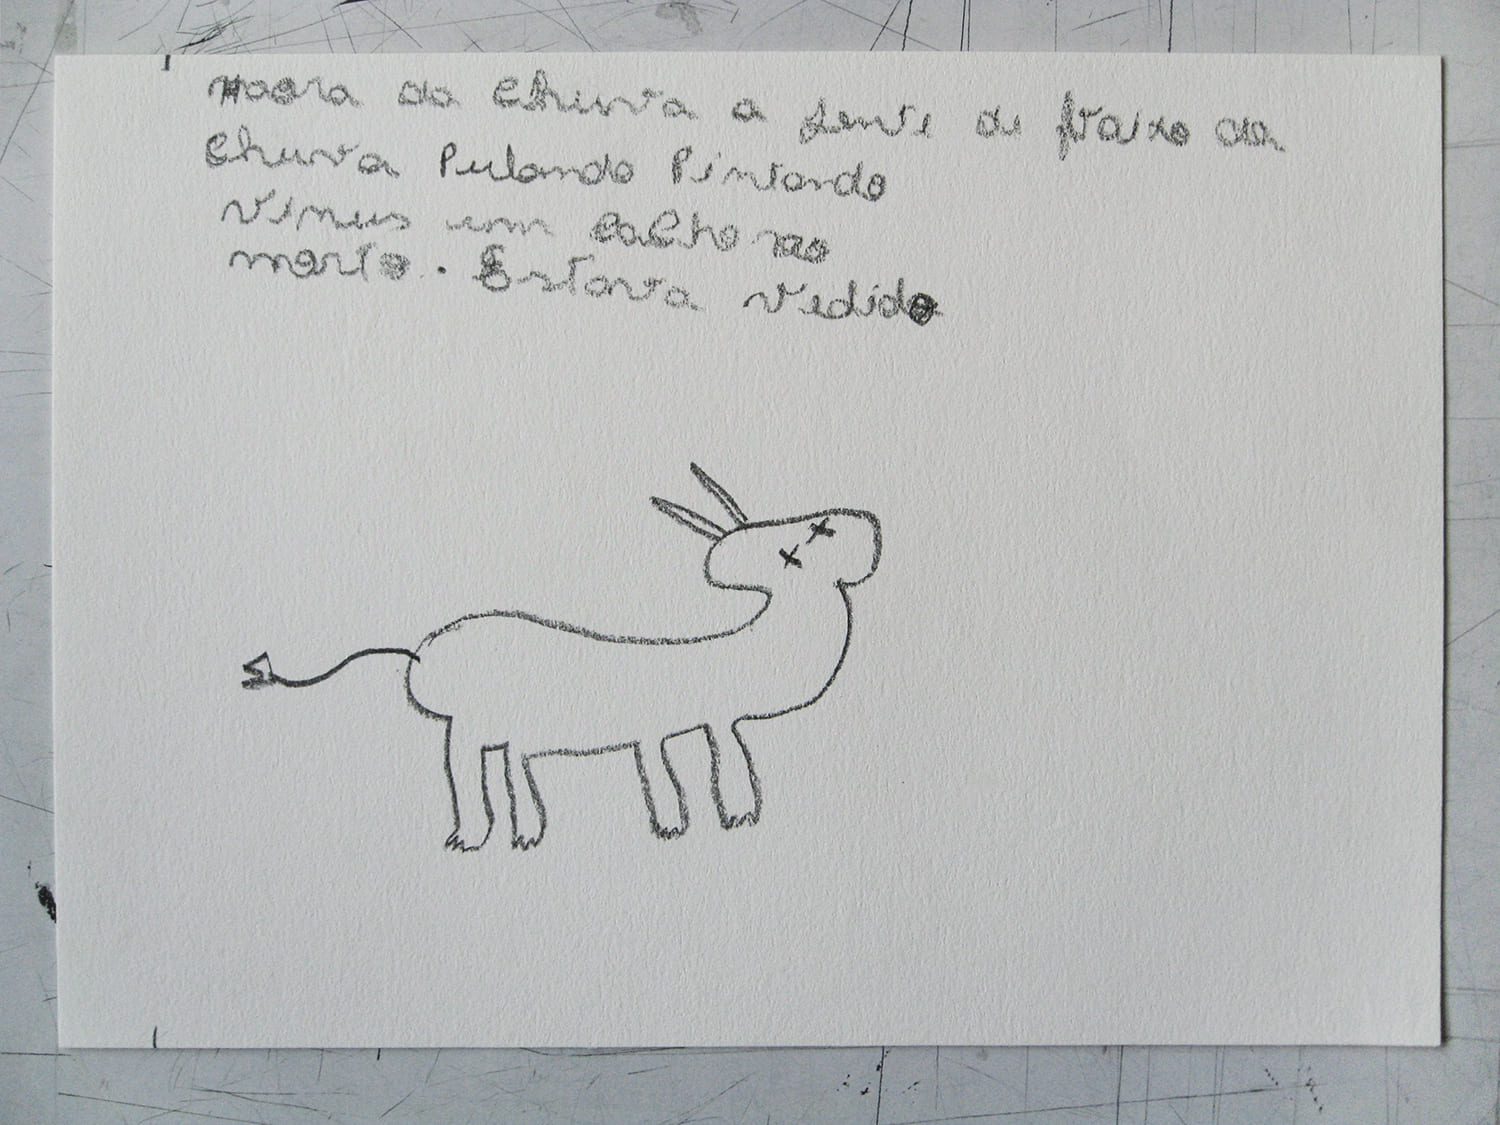 naora da chuva a jente di baixo da
chuva Pulando Pintando
vimus um cachoro
morto. Estava vedido